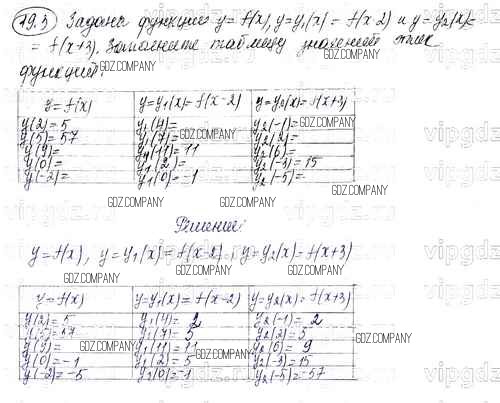 19.3 Задана функция y=f(x), y=y₁(x)=f(x-2) и y=y₂(x)=
=f(x+3). Заполните таблицу значений этих
функций:
y=f(x) y=y₁(x)=f(x-2) y=y₂(x)=f(x+3)
y(2)=5 y₁(4)= y₂(-1)=
y(5)=57 y₁(7)= y₂(2)=
y(9)= y₁(11)=11 y₂(6)=
y(0)= y₁(2)= y₂(-3)=15
y(-2)= y₁(0)=-1 y₂(-5)=
Решение:
y=f(x), y=y₁(x)=f(x-2), y=y₂(x)=f(x+3)
y=f(x) y=y₁(x)=f(x-2) y=y₂(x)=f(x+3)
y(2)=5 y₁(4)=2 y₂(-1)=2
y(5)=57 y₁(7)=5 y₂(2)=5
y(9)= y₁(11)=11 y₂(6)=9
y(0)=-1 y₁(2)=5 y₂(-3)=15
y(-2)=-5 y₂(0)=-1 y₂(-5)=-57
GDZ.COMPANY
vipgdz.ru